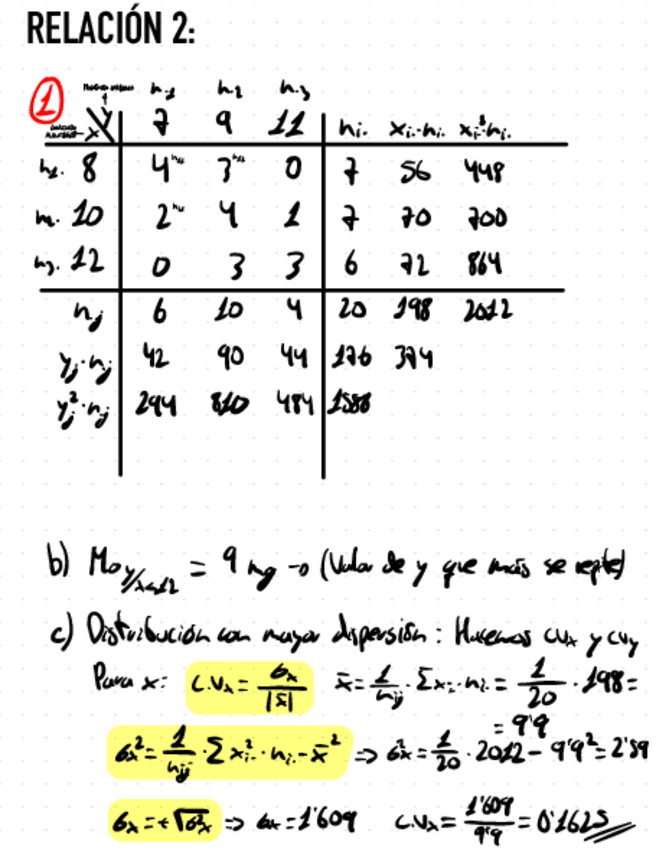 RELACIÓN 2:
1 n.1 n.2 n.3
x y 7 9 11 ni. xi.·ni. xi.²·ni.
n1. 8 4 3 0 7 56 448
n2. 10 2 4 1 7 70 700
n3. 12 0 3 3 6 72 864
nj 6 10 4 20 198 2012
yj·nj 42 90 44 176 374
yj²·nj 294 810 484 1588
b) Mo y/x=12 = 9 mg → (Valor de y que más se repite)
c) Distribución con mayor dispersión: Hacemos CVx y CVy
Para x: C.Vx = σx/|x̄| x̄ = 1/nij · Σxi·ni. = 1/20 · 198 =
= 9'9
σx² = 1/nij · Σ xi.²·ni. - x̄² => σx² = 1/20 · 2012 - 9'9² = 2'59
σx = +√σ²x => σx = 1'609 C.Vx = 1'609/9'9 = 0'1625